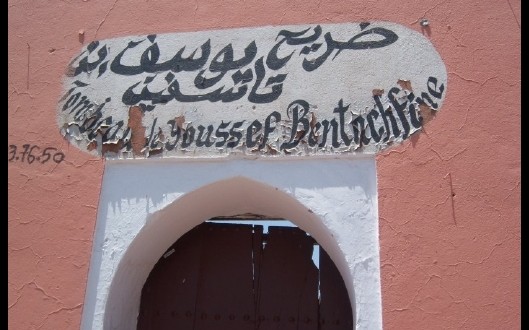 ضريح يوسف بن
تاشفين
Tombeau de Youssef Bentachfine
3.76.50